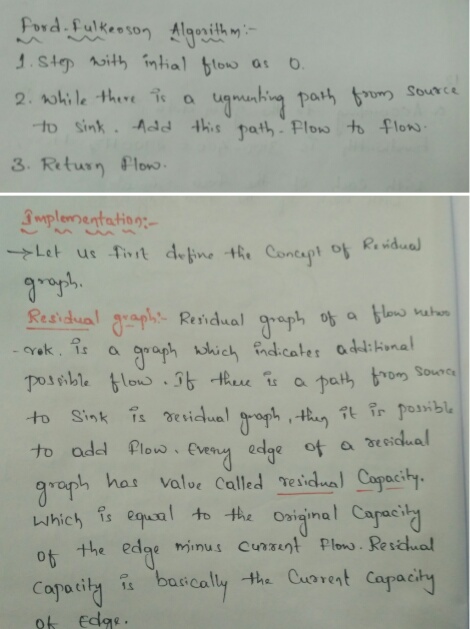 Ford-Fulkerson Algorithm:-
1. Step with intial flow as 0.
2. while there is a ugmenting path from source
to sink. Add this path-flow to flow.
3. Return flow.
Implementation:-
→Let us first define the Concept of Residual
graph.
Residual graph:- Residual graph of a flow netwo
-rok. is a graph which indicates additional
possible flow. If there is a path from source
to Sink is residual graph, then it is possible
to add flow. Every edge of a residual
graph has value called residual Capacity.
which is equal to the original Capacity
of the edge minus current flow. Residual
Capacity is basically the Current Capacity
of Edge.